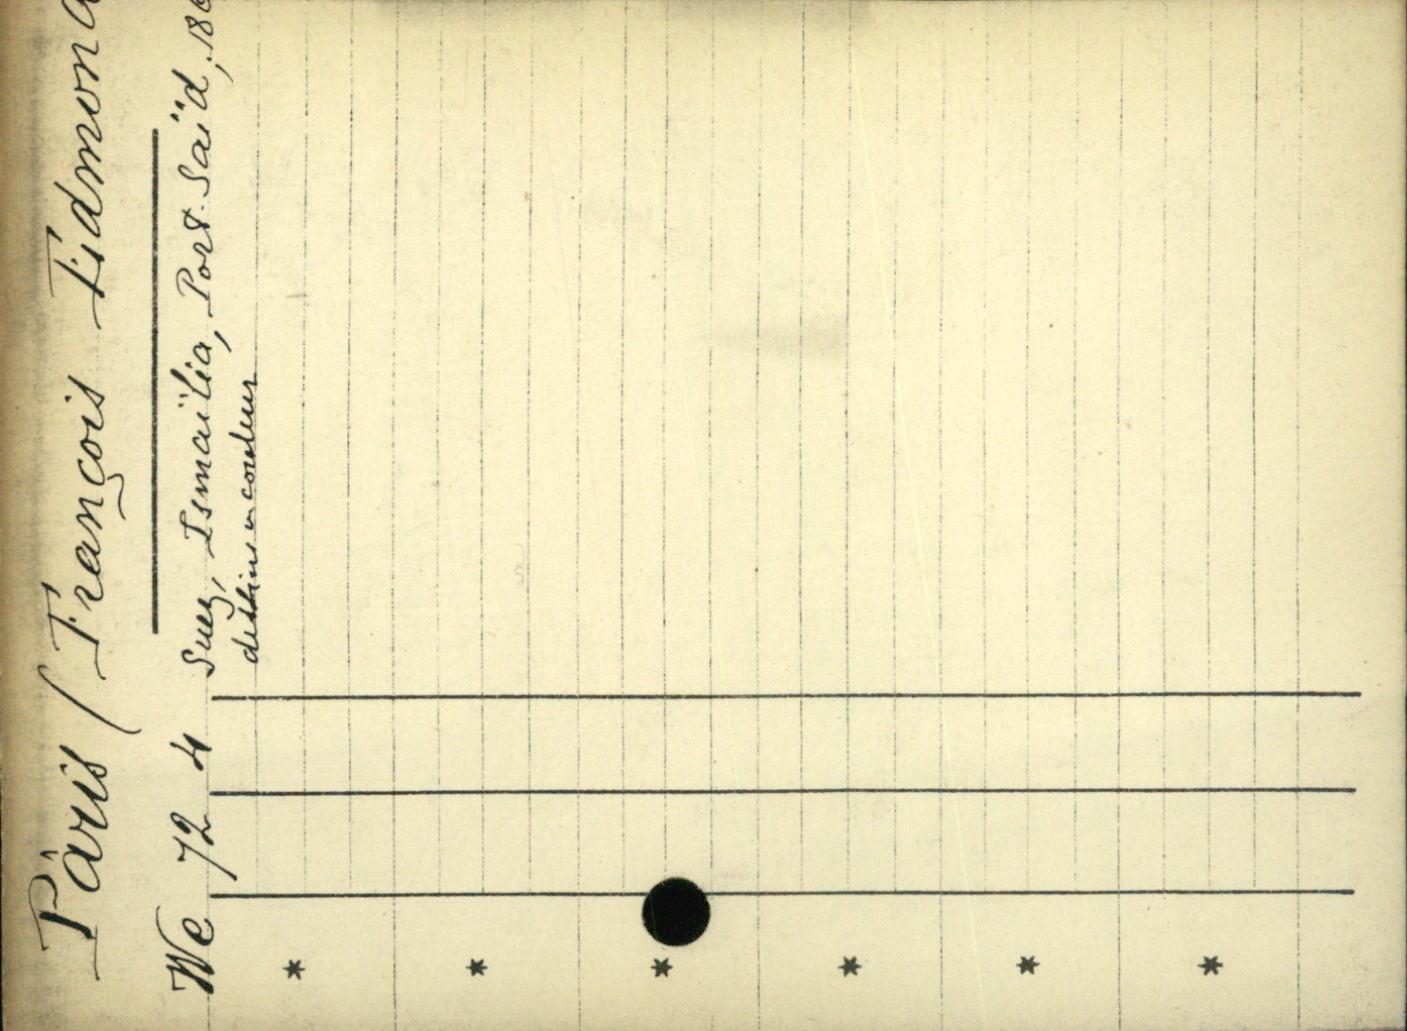 Pâris (François Edmond
We 72 4 Suez, Ismaïlia, Port-Saïd, 186
dessins en couleur